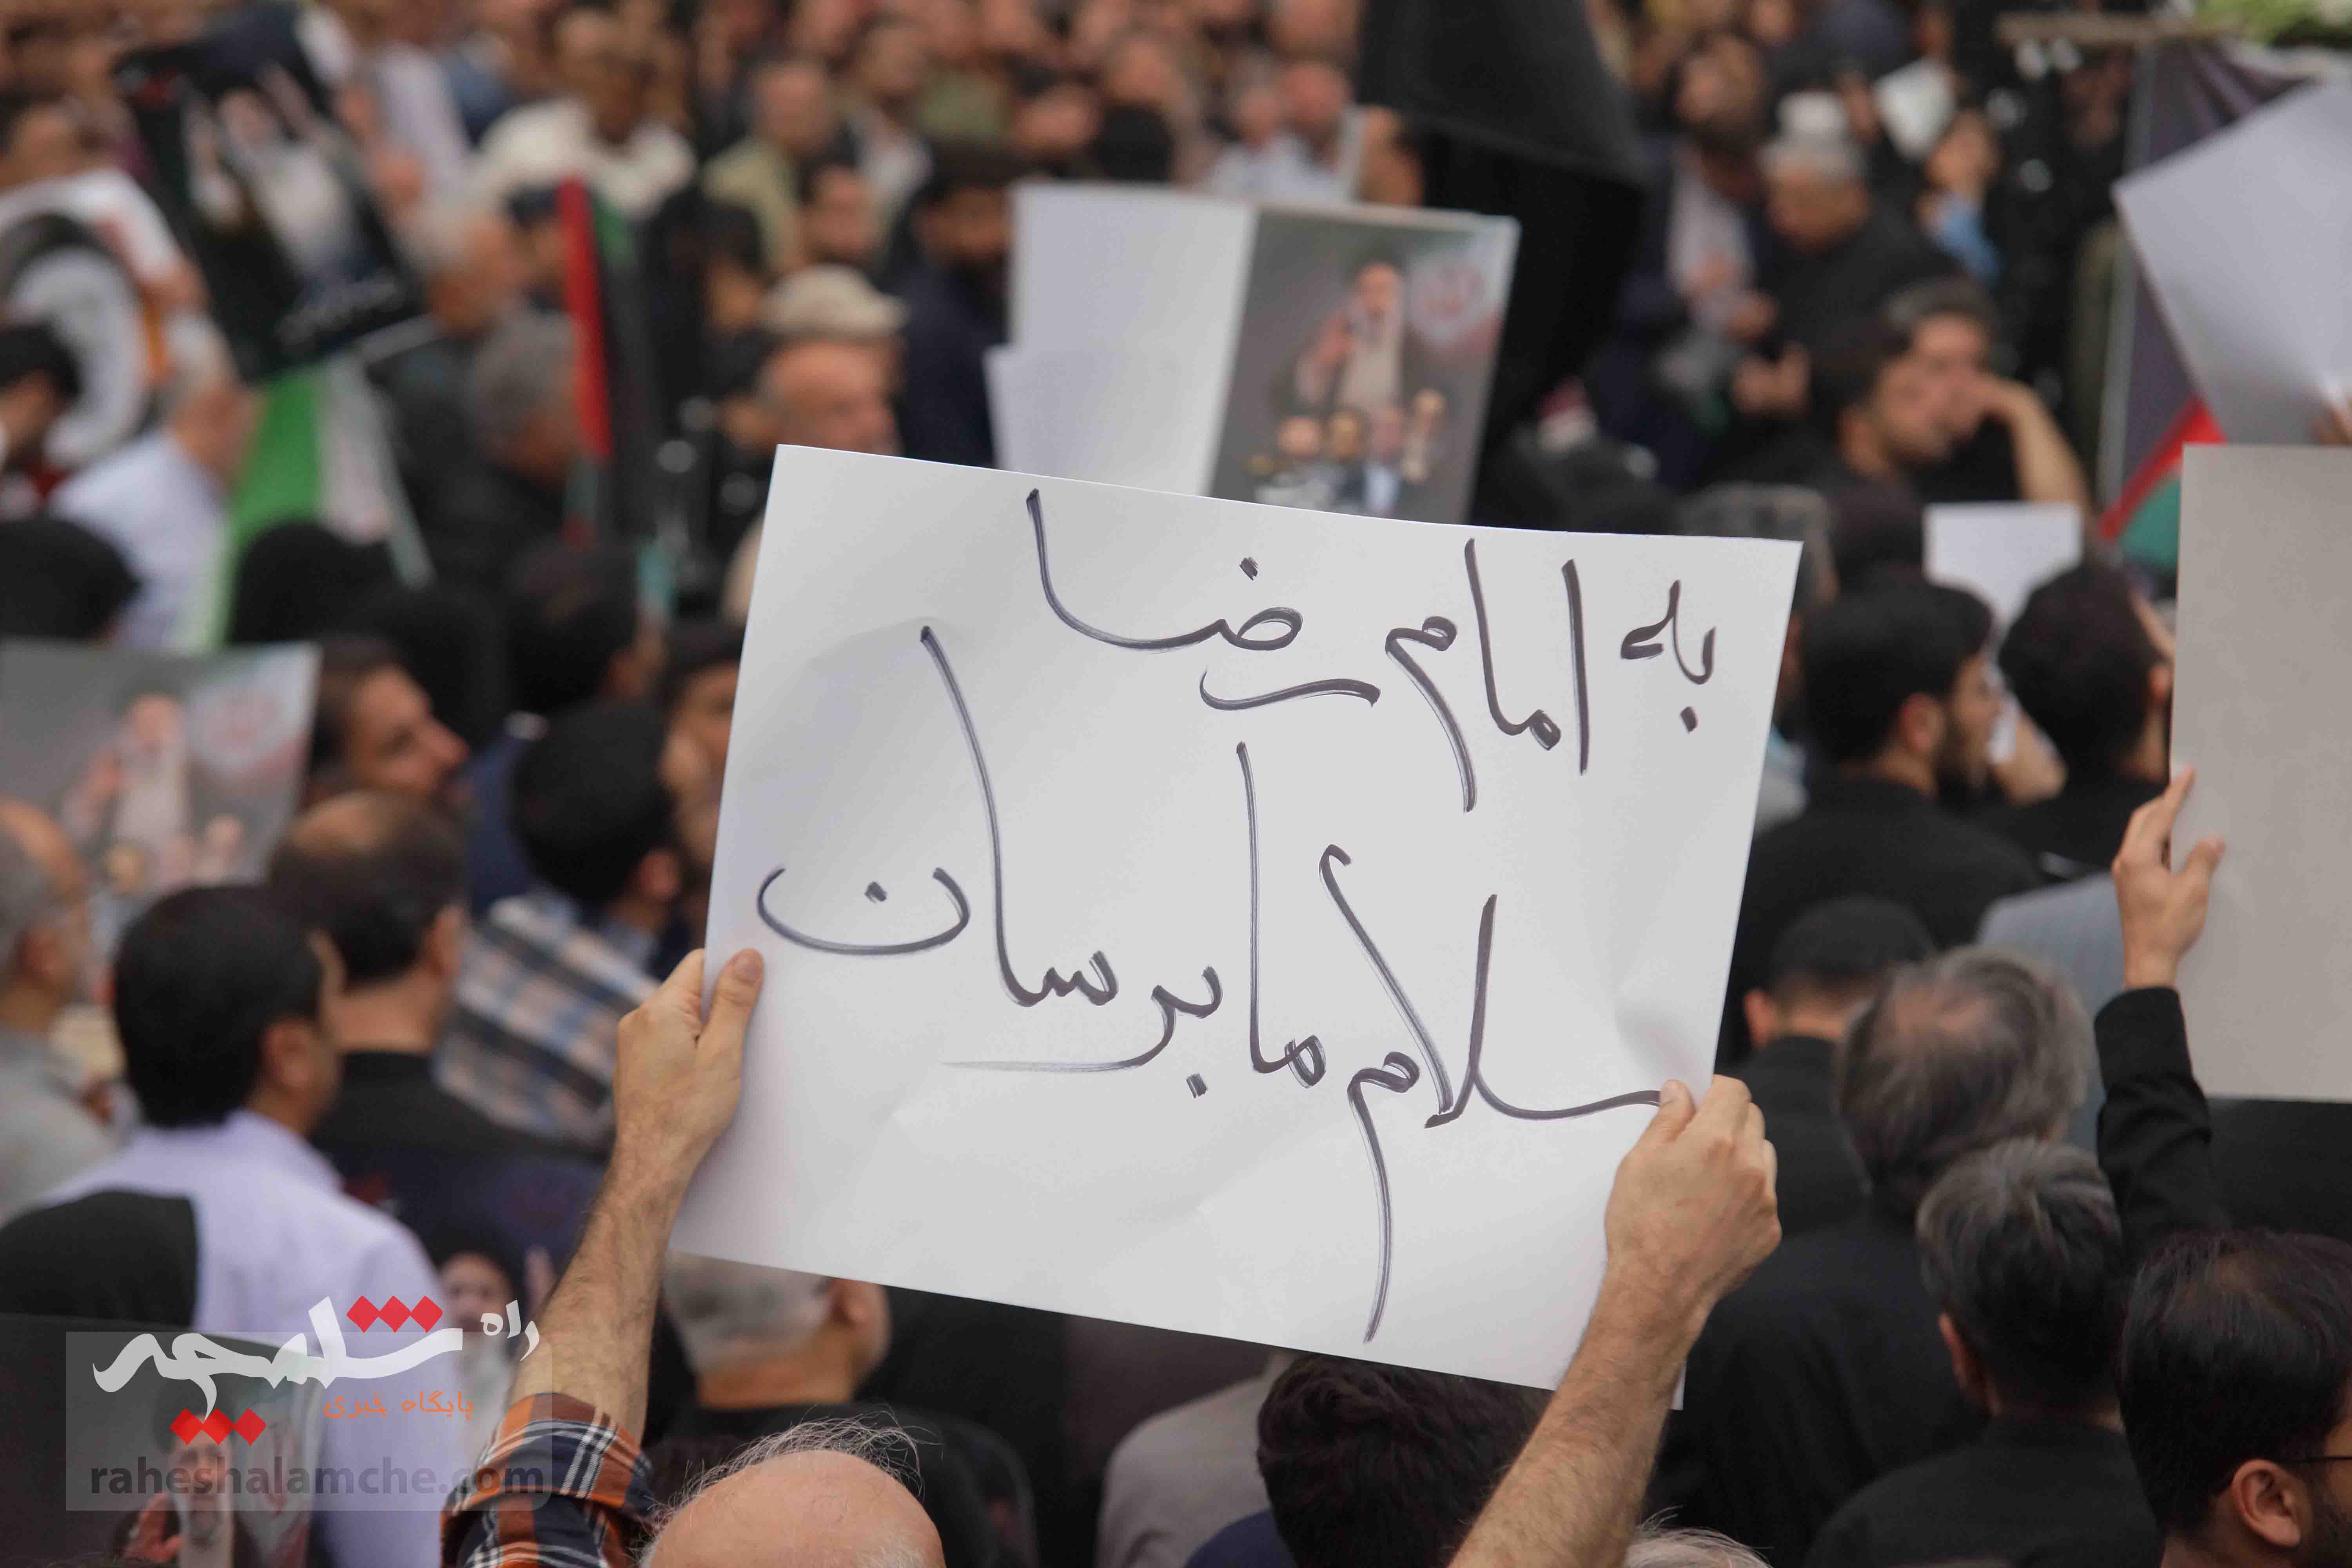 به امام رضا
سلام ما برسان
راه شلمچه
پایگاه خبری
raheshalamche.com